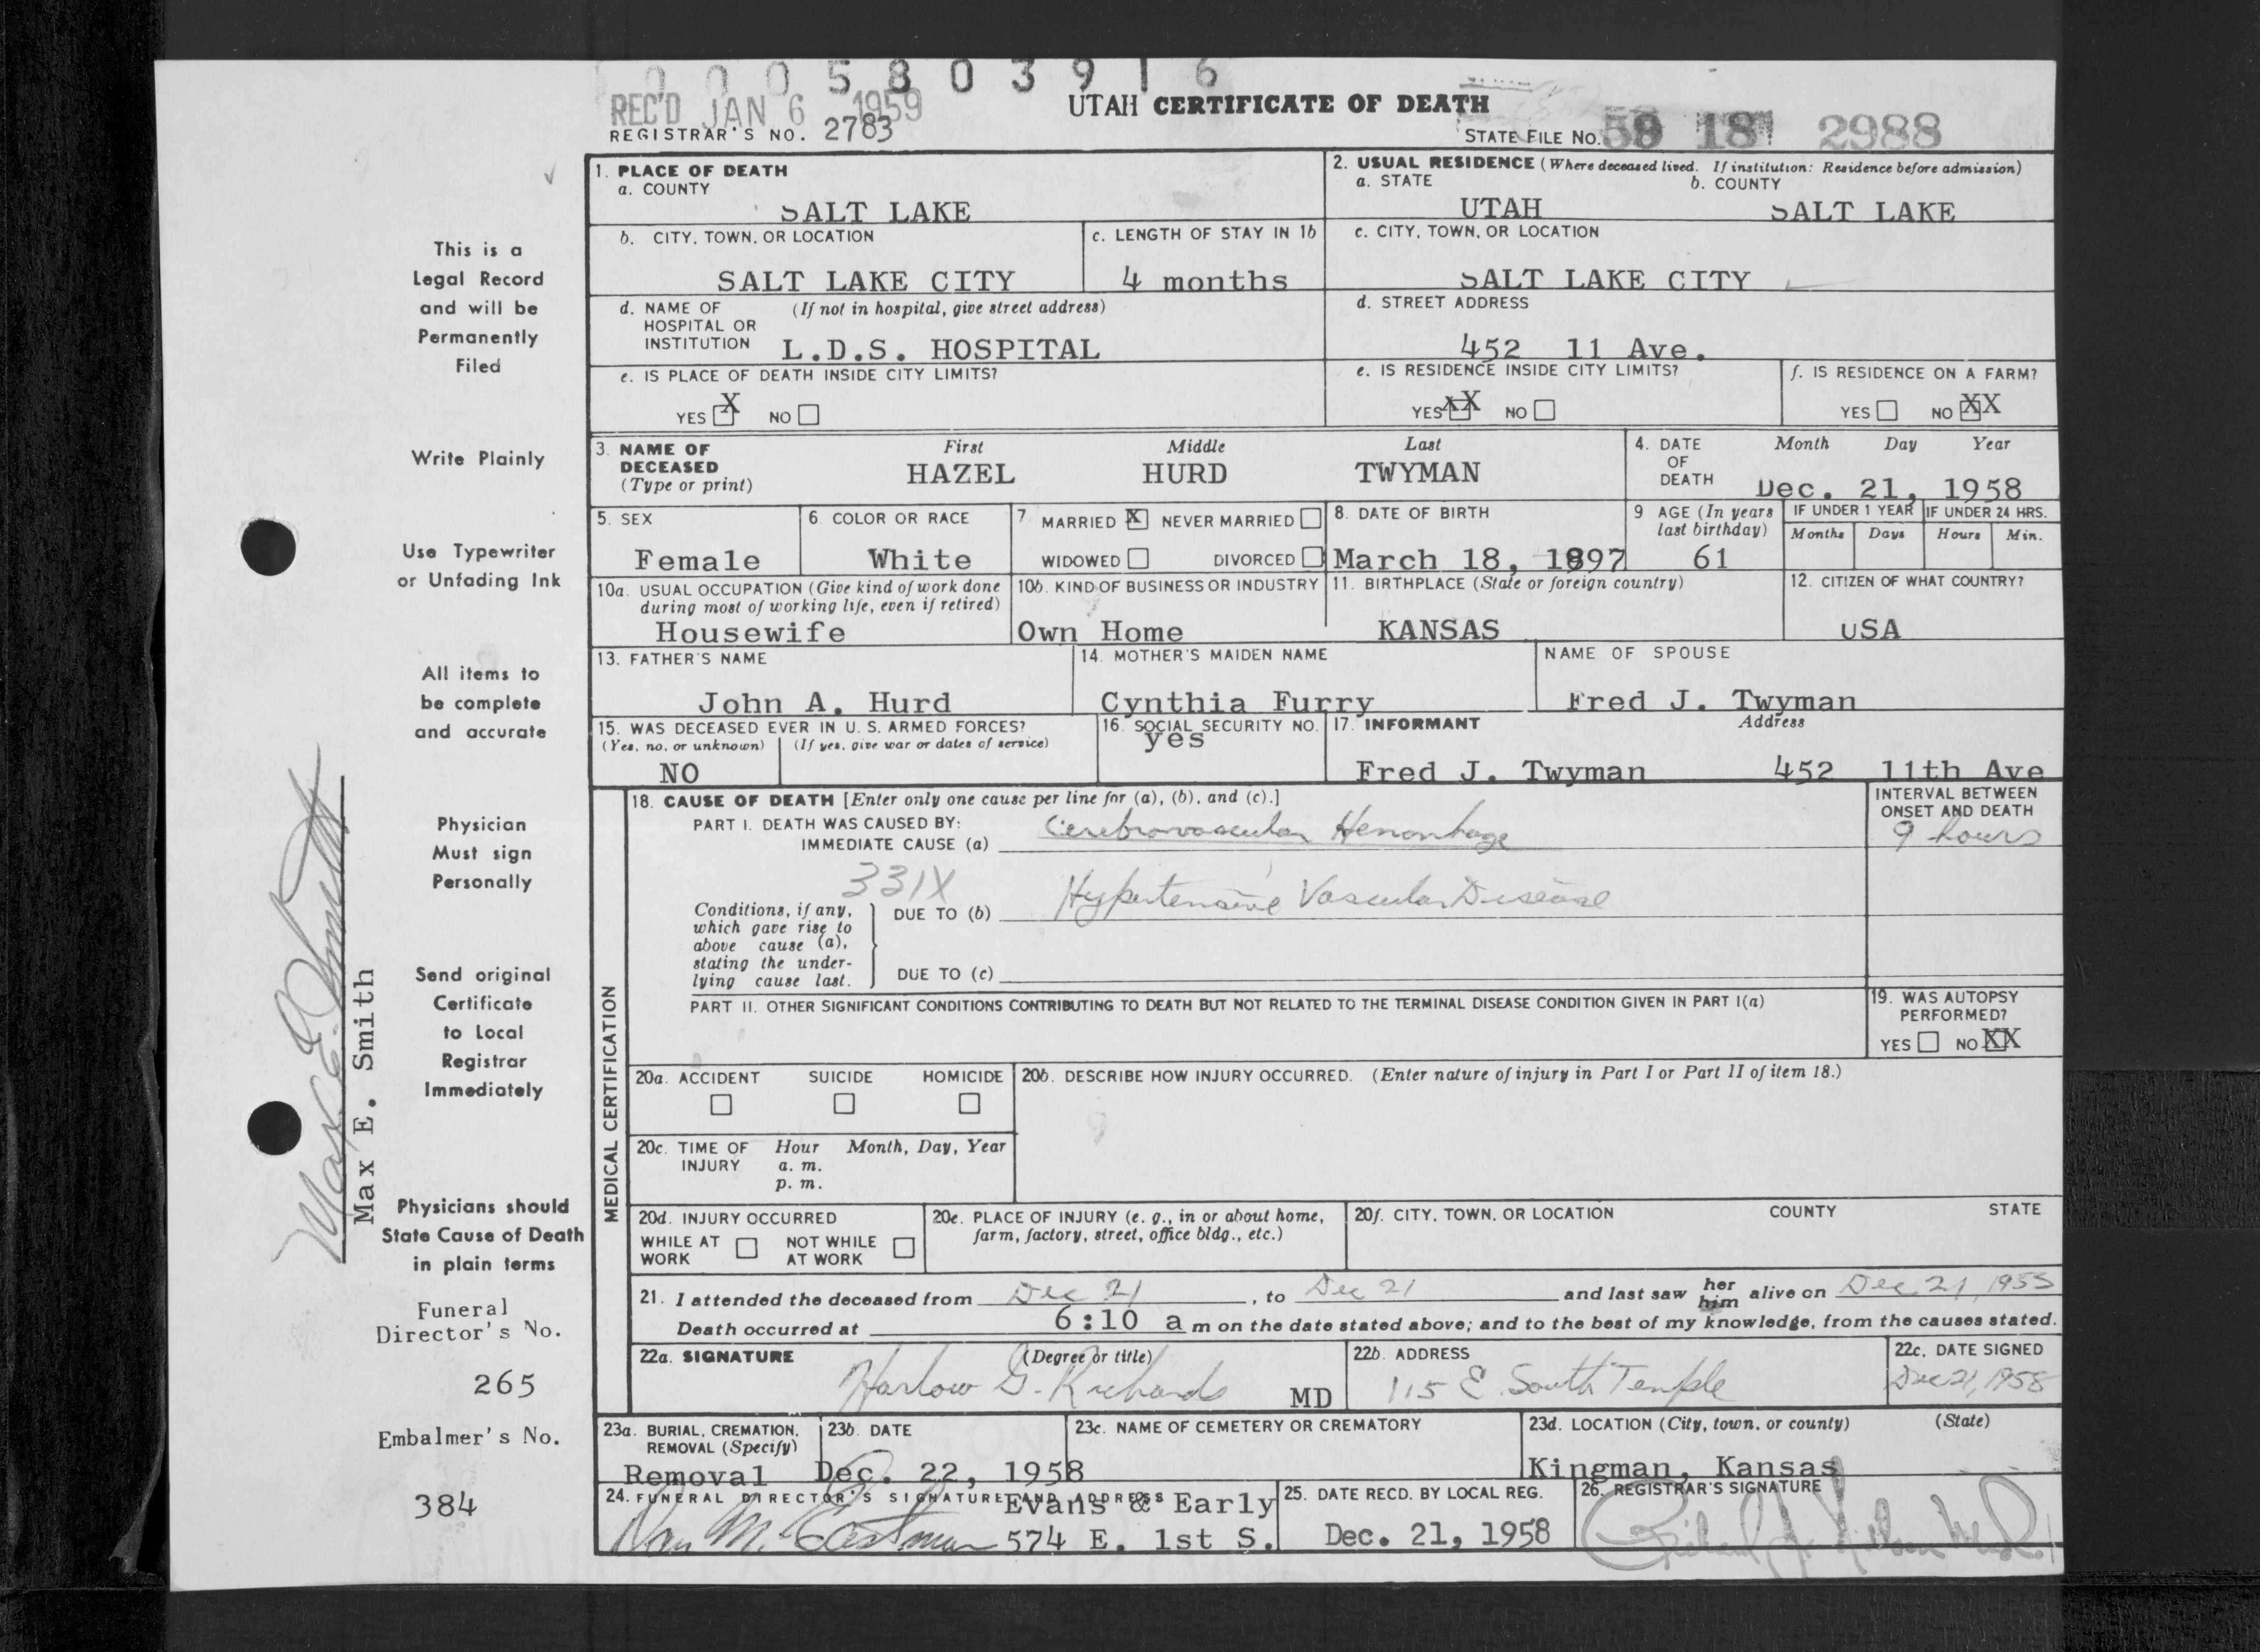 0 0 0 5 8 0 3 9 1 6
REC'D JAN 6 1959
UTAH CERTIFICATE OF DEATH
REGISTRAR'S NO. 2783
STATE FILE No. 58 18 2988
1. PLACE OF DEATH
a. COUNTY
SALT LAKE
2. USUAL RESIDENCE (Where deceased lived. If institution: Residence before admission)
a. STATE b. COUNTY
UTAH SALT LAKE
b. CITY, TOWN, OR LOCATION
SALT LAKE CITY
c. LENGTH OF STAY IN 1b
4 months
c. CITY, TOWN, OR LOCATION
SALT LAKE CITY
d. NAME OF (If not in hospital, give street address)
HOSPITAL OR
INSTITUTION L.D.S. HOSPITAL
d. STREET ADDRESS
452 11 Ave.
e. IS PLACE OF DEATH INSIDE CITY LIMITS?
YES X NO
e. IS RESIDENCE INSIDE CITY LIMITS?
YES XX NO
f. IS RESIDENCE ON A FARM?
YES NO XX
3. NAME OF DECEASED
(Type or print)
First Middle Last
HAZEL HURD TWYMAN
4. DATE OF DEATH
Month Day Year
Dec. 21, 1958
5. SEX
Female
6. COLOR OR RACE
White
7. MARRIED X NEVER MARRIED
WIDOWED DIVORCED
8. DATE OF BIRTH
March 18, 1897
9 AGE (In years
last birthday)
61
IF UNDER 1 YEAR
Months Days
IF UNDER 24 HRS.
Hours Min.
10a. USUAL OCCUPATION (Give kind of work done
during most of working life, even if retired)
Housewife
10b. KIND OF BUSINESS OR INDUSTRY
Own Home
11. BIRTHPLACE (State or foreign country)
KANSAS
12. CITIZEN OF WHAT COUNTRY?
USA
13. FATHER'S NAME
John A. Hurd
14. MOTHER'S MAIDEN NAME
Cynthia Furry
NAME OF SPOUSE
Fred J. Twyman
15. WAS DECEASED EVER IN U. S. ARMED FORCES?
(Yes, no, or unknown) (If yes, give war or dates of service)
NO
16. SOCIAL SECURITY NO.
yes
17. INFORMANT Address
Fred J. Twyman 452 11th Ave
MEDICAL CERTIFICATION
18. CAUSE OF DEATH [Enter only one cause per line for (a), (b), and (c).]
PART I. DEATH WAS CAUSED BY:
IMMEDIATE CAUSE (a) Cerebrovascular Hemorrhage
INTERVAL BETWEEN
ONSET AND DEATH
9 hours
331X
Conditions, if any,
which gave rise to
above cause (a),
stating the under-
lying cause last.
DUE TO (b) Hypertensive Vascular Disease
DUE TO (c)
PART II. OTHER SIGNIFICANT CONDITIONS CONTRIBUTING TO DEATH BUT NOT RELATED TO THE TERMINAL DISEASE CONDITION GIVEN IN PART I(a)
19. WAS AUTOPSY
PERFORMED?
YES NO XX
20a. ACCIDENT SUICIDE HOMICIDE
20b. DESCRIBE HOW INJURY OCCURRED. (Enter nature of injury in Part I or Part II of item 18.)
20c. TIME OF Hour Month, Day, Year
INJURY a. m.
p. m.
20d. INJURY OCCURRED
WHILE AT WORK NOT WHILE AT WORK
20e. PLACE OF INJURY (e. g., in or about home,
farm, factory, street, office bldg., etc.)
20f. CITY, TOWN, OR LOCATION COUNTY STATE
21. I attended the deceased from Dec 21, to Dec 21 and last saw her him alive on Dec 21, 1958
Death occurred at 6:10 a m on the date stated above; and to the best of my knowledge, from the causes stated.
22a. SIGNATURE (Degree or title)
Harlow G. Richards MD
22b. ADDRESS
115 E. South Temple
22c. DATE SIGNED
Dec 21, 1958
23a. BURIAL, CREMATION,
REMOVAL (Specify)
Removal
23b. DATE
Dec. 22, 1958
23c. NAME OF CEMETERY OR CREMATORY
23d. LOCATION (City, town, or county) (State)
Kingman, Kansas
24. FUNERAL DIRECTOR'S SIGNATURE AND ADDRESS
Evans & Early
574 E. 1st S.
25. DATE RECD. BY LOCAL REG.
Dec. 21, 1958
26. REGISTRAR'S SIGNATURE
This is a
Legal Record
and will be
Permanently
Filed
Write Plainly
Use Typewriter
or Unfading Ink
All items to
be complete
and accurate
Physician
Must sign
Personally
Send original
Certificate
to Local
Registrar
Immediately
Physicians should
State Cause of Death
in plain terms
Funeral
Director's No.
265
Embalmer's No.
384
Max E. Smith
Max E. Smith